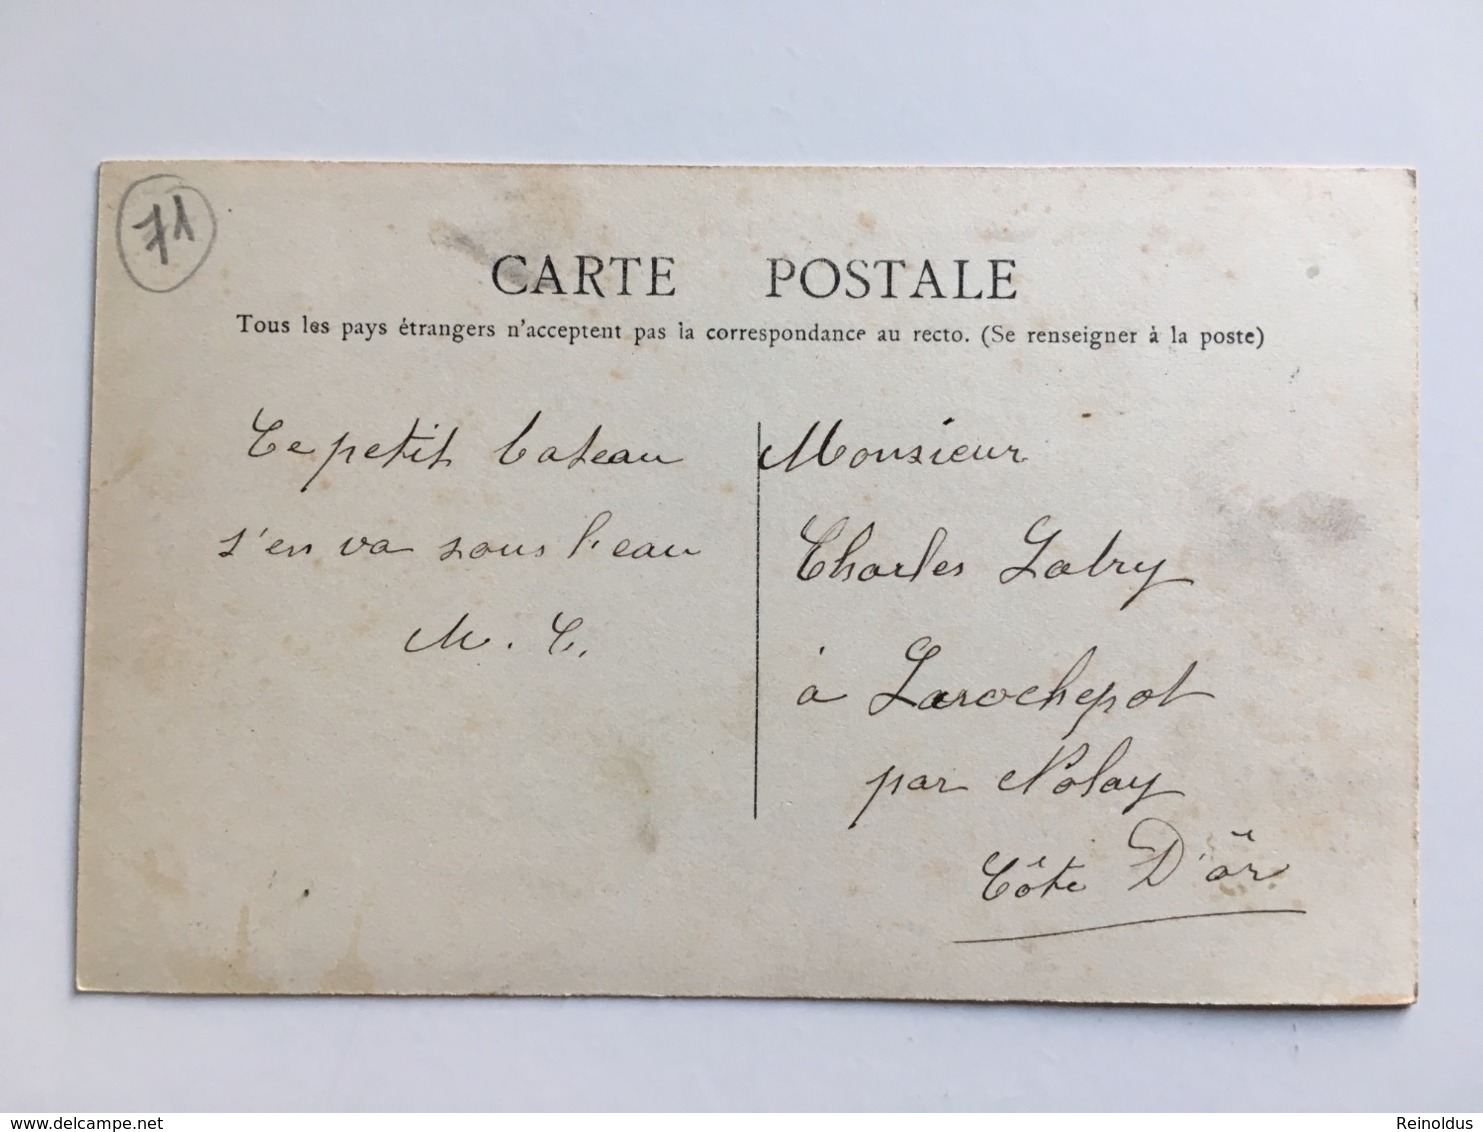 71
CARTE POSTALE
Tous les pays étrangers n'acceptent pas la correspondance au recto. (Se renseigner à la poste)
Ce petit bateau
s'en va sous l'eau
M. C.
Monsieur
Charles Labry
à Larochepot
par Nolay
Côte D'ôr
www.delcampe.net
Reinoldus